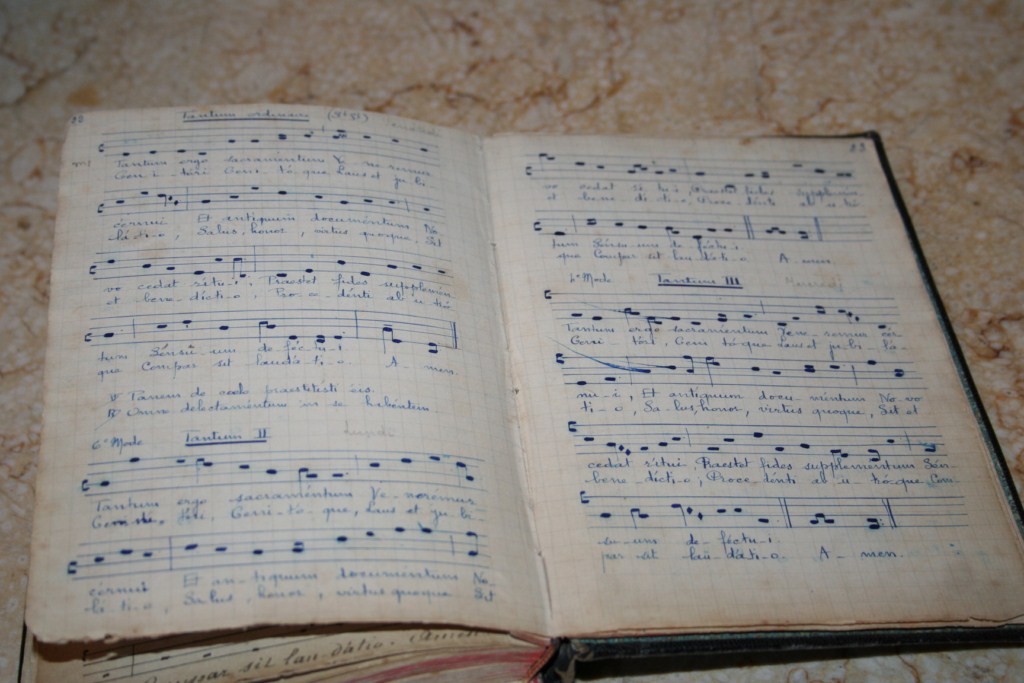 22
Tantum ordinaire
Tantum ergo sacramentum Ve ne remur
Geni - tóri Geni - tó que, Laus et ju bi
cérnui Et antiquum documéntum No
lá-ti-o, Salus, honor, virtus quoque, Sit
vo cedat rítu-i, Praestet fides supplemén
et bene-dícti-o, Pro-ce-dénti ab u-tró
tum Sénsu-um de féctu-i
que Compar sit laudá-ti-o A - men.
V Panem de coelo praestitísti eis.
R Omne delectaméntum in se habéntem
6° Mode Tantum II Lundi
Tantum ergo sacraméntum Ve-neremur
Geni-tóri, Geni-tó-que, Laus et ju bi-
cérnui Et an-tiquum documéntum No-
lá-ti-o, Salus, honor, virtus quoque Sit
23
vo cedat rí-tu-i, Praestet fides supplemén
et bene-dí-cti-o, Proce dénti ab u-tró
tum Sénsu-um de féctu-i
que Compar sit laudáti-o A - men.
6° Mode Tantum III
Tantum ergo sacraméntum Ve-ne-remur cér
Geni-tóri, Geni tó-que Laus et ju-bi-lá
nu-i, Et antíquum docu-méntum No-vo
ti-o, Sa-lus, honor, virtus quoque, Sit et
cedat rítui, Praestet fides suppleméntum Sén-
bene-dícti-o, Proce dénti ab u-tró-que Com
su-um de-féctu-i
par sit laudáti-o. A - men.
par sit laudátio. Amen